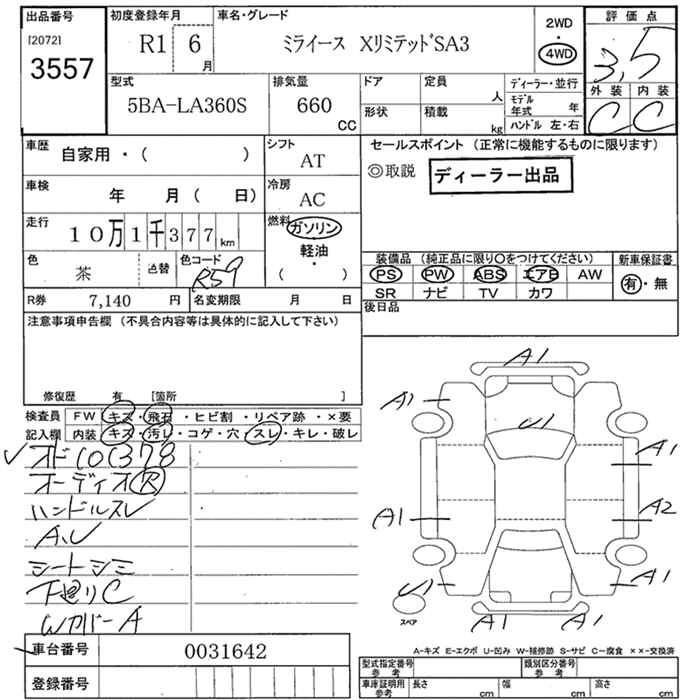 出品番号
[2072]
3557
初度登録年月
R1 6 月
車名・グレード
ミライース XリミテッドSA3
2WD
・
4WD
評価点
3,5
外装 内装
C C
型式
5BA-LA360S
排気量
660 CC
ドア
形状
定員 人
積載 kg
ディーラー・並行
モデル年式 年
ハンドル 左・右
車歴
自家用・( )
シフト
AT
車検
年 月( 日)
冷房
AC
走行
10万1千377km
燃料
ガソリン
・
軽油
・
( )
色
茶
色替
色コード
R59
R券 7,140 円
名変期限 月 日
セールスポイント (正常に機能するものに限ります)
◎取説 ディーラー出品
装備品 (純正品に限り○をつけてください)
PS PW ABS エアB AW
SR ナビ TV カワ
新車保証書
有・無
後日品
注意事項申告欄 (不具合内容等は具体的に記入して下さい)
修復歴 有 [箇所 ]
検査員
記入欄
FW キズ・飛石・ヒビ割・リペア跡・×要
内装 キズ・汚レ・コゲ・穴・スレ・キレ・破レ
✓オド101378
オーディオR
ハンドルスレ
A,U
シートシミ
下廻りC
WカバーA
車台番号 0031642
登録番号
A1
A1
U1
A1
A1
A2
U1
A1
A1
A1
スペア
A-キズ E-エクボ U-凹み W-補修跡 S-サビ C-腐食 ××-交換済
型式指定番号
参考
類別区分番号
参考
車庫証明用
参考
長さ cm
幅 cm
高さ cm